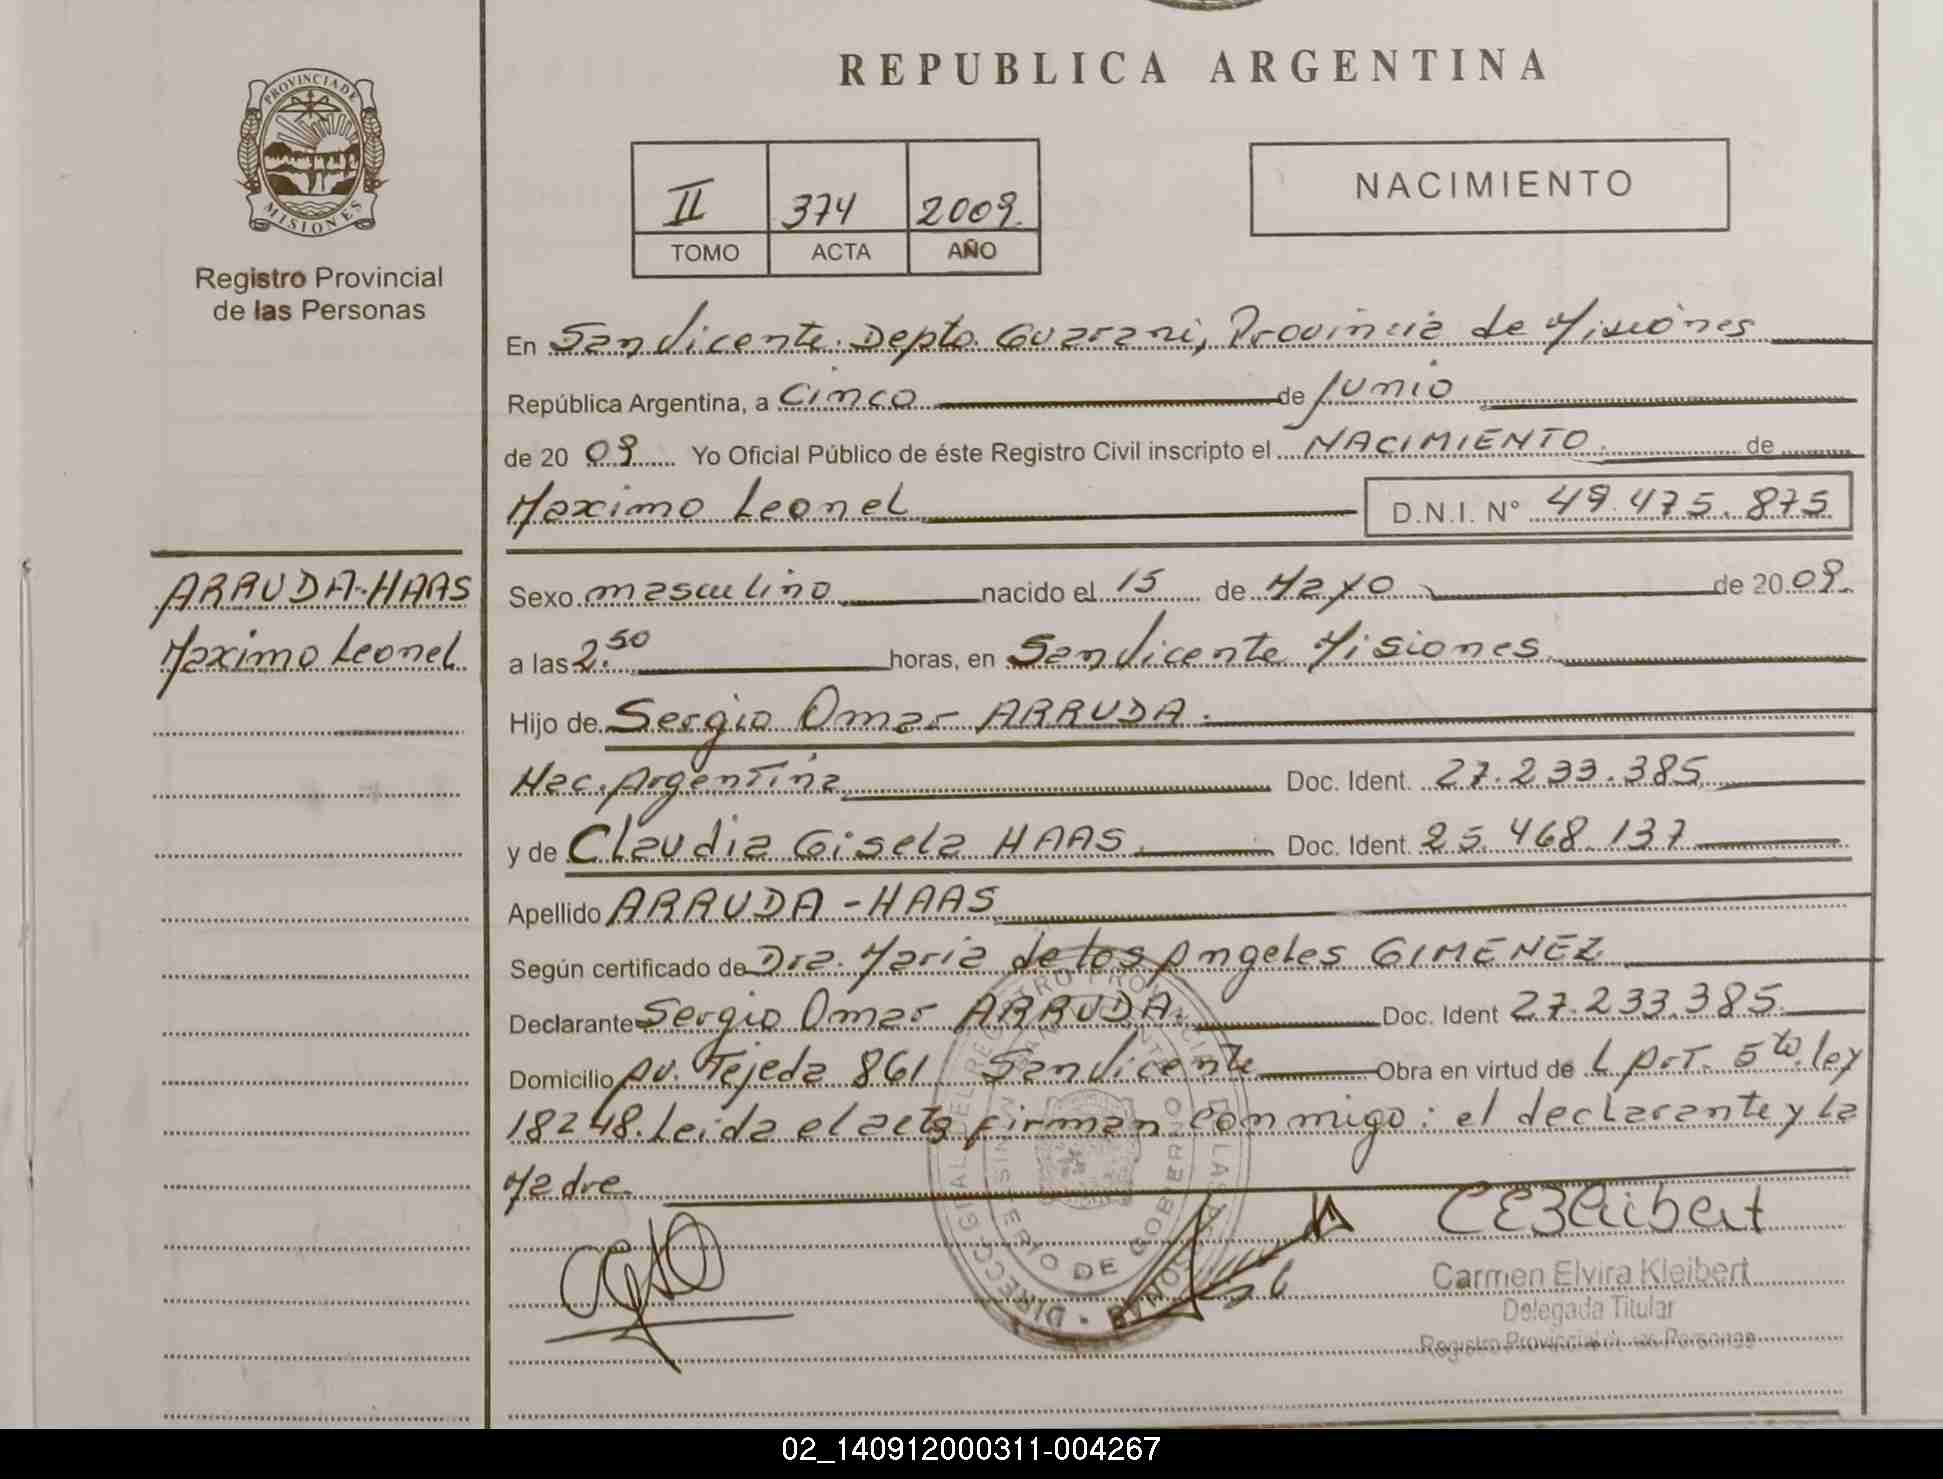 REPUBLICA ARGENTINA
PROVINCIA DE
MISIONES
Registro Provincial
de las Personas
II 374 2009.
TOMO ACTA AÑO
NACIMIENTO
En San Vicente. Depto. Guarani, Provincia de Misiones
República Argentina, a Cinco de Junio
de 20 09 Yo Oficial Público de éste Registro Civil inscripto el NACIMIENTO. de
Maximo Leonel D.N.I. Nº 49.475.875
ARRUDA-HAAS
Maximo Leonel
Sexo masculino nacido el 15 de Mayo de 20 09.
a las 2.50 horas, en San Vicente Misiones
Hijo de Sergio Omar ARRUDA.
Nac. Argentina Doc. Ident. 27.233.385
y de Claudia Gisela HAAS. Doc. Ident. 25.468.137
Apellido ARRUDA-HAAS
Según certificado de Dra. Maria de los Angeles GIMENEZ
Declarante Sergio Omar ARRUDA. Doc. Ident 27.233.385.
Domicilio Av. Tejeda 861 San Vicente Obra en virtud de L Art. 5to. ley
18248. Leida el acta firman conmigo: el declarante y la
Madre.
CEKleibert
Carmen Elvira Kleibert
Delegada Titular
Registro Provincial de las Personas
02_140912000311-004267